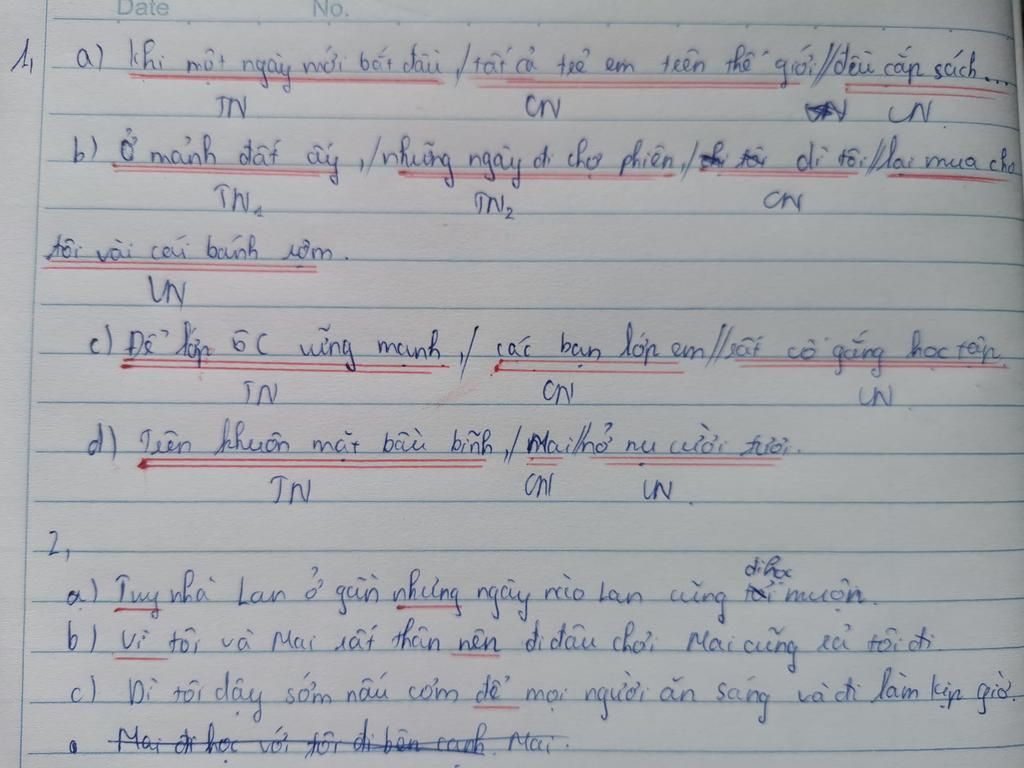 Date No.
1, a) Khi một ngày mới bắt đầu,/tất cả trẻ em trên thế giới//đều cắp sách...
TN CN VN
b) Ở mảnh đất ấy,/những ngày đi chợ phiên,/dì tôi//lại mua cho
TN1 TN2 CN
tôi vài cái bánh rợm.
VN
c) Để lớp 5C vững mạnh,/các bạn lớp em//rất cố gắng học tập.
TN CN VN
d) Trên khuôn mặt bầu bĩnh,/Mai//nở nụ cười tươi.
TN CN VN
2,
a) Tuy nhà Lan ở gần nhưng ngày nào Lan cũng đi học muộn.
b) Vì tôi và Mai rất thân nên đi đâu chơi Mai cũng rủ tôi đi.
c) Dì tôi dậy sớm nấu cơm để mọi người ăn sáng và đi làm kịp giờ.
Mai đi học với tôi đi bên cạnh Mai.